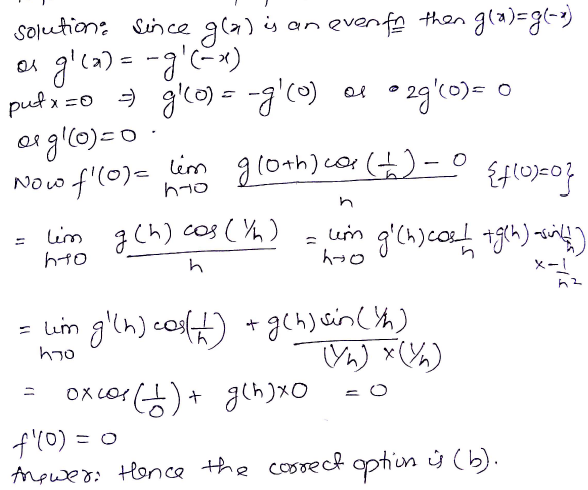 solution: Since g(x) is an even fn then g(x)=g(-x)
or g'(x) = -g'(-x)
put x=0 ⇒ g'(0) = -g'(0) or 2g'(0)= 0
or g'(0)=0 .
Now f'(0)= lim h→0 g(0+h)cos(1/h) - 0 / h {f(0)=0}
= lim h→0 g(h) cos(1/h) / h = lim h→0 g'(h)cos 1/h + g(h) -sin(1/h) x -1/h2
= lim h→0 g'(h) cos(1/h) + g(h) sin(1/h) / (1/h) x(1/h)
= 0x cos(1/0) + g(h)x0 = 0
f'(0) = 0
Answer: Hence the correct option is (b).